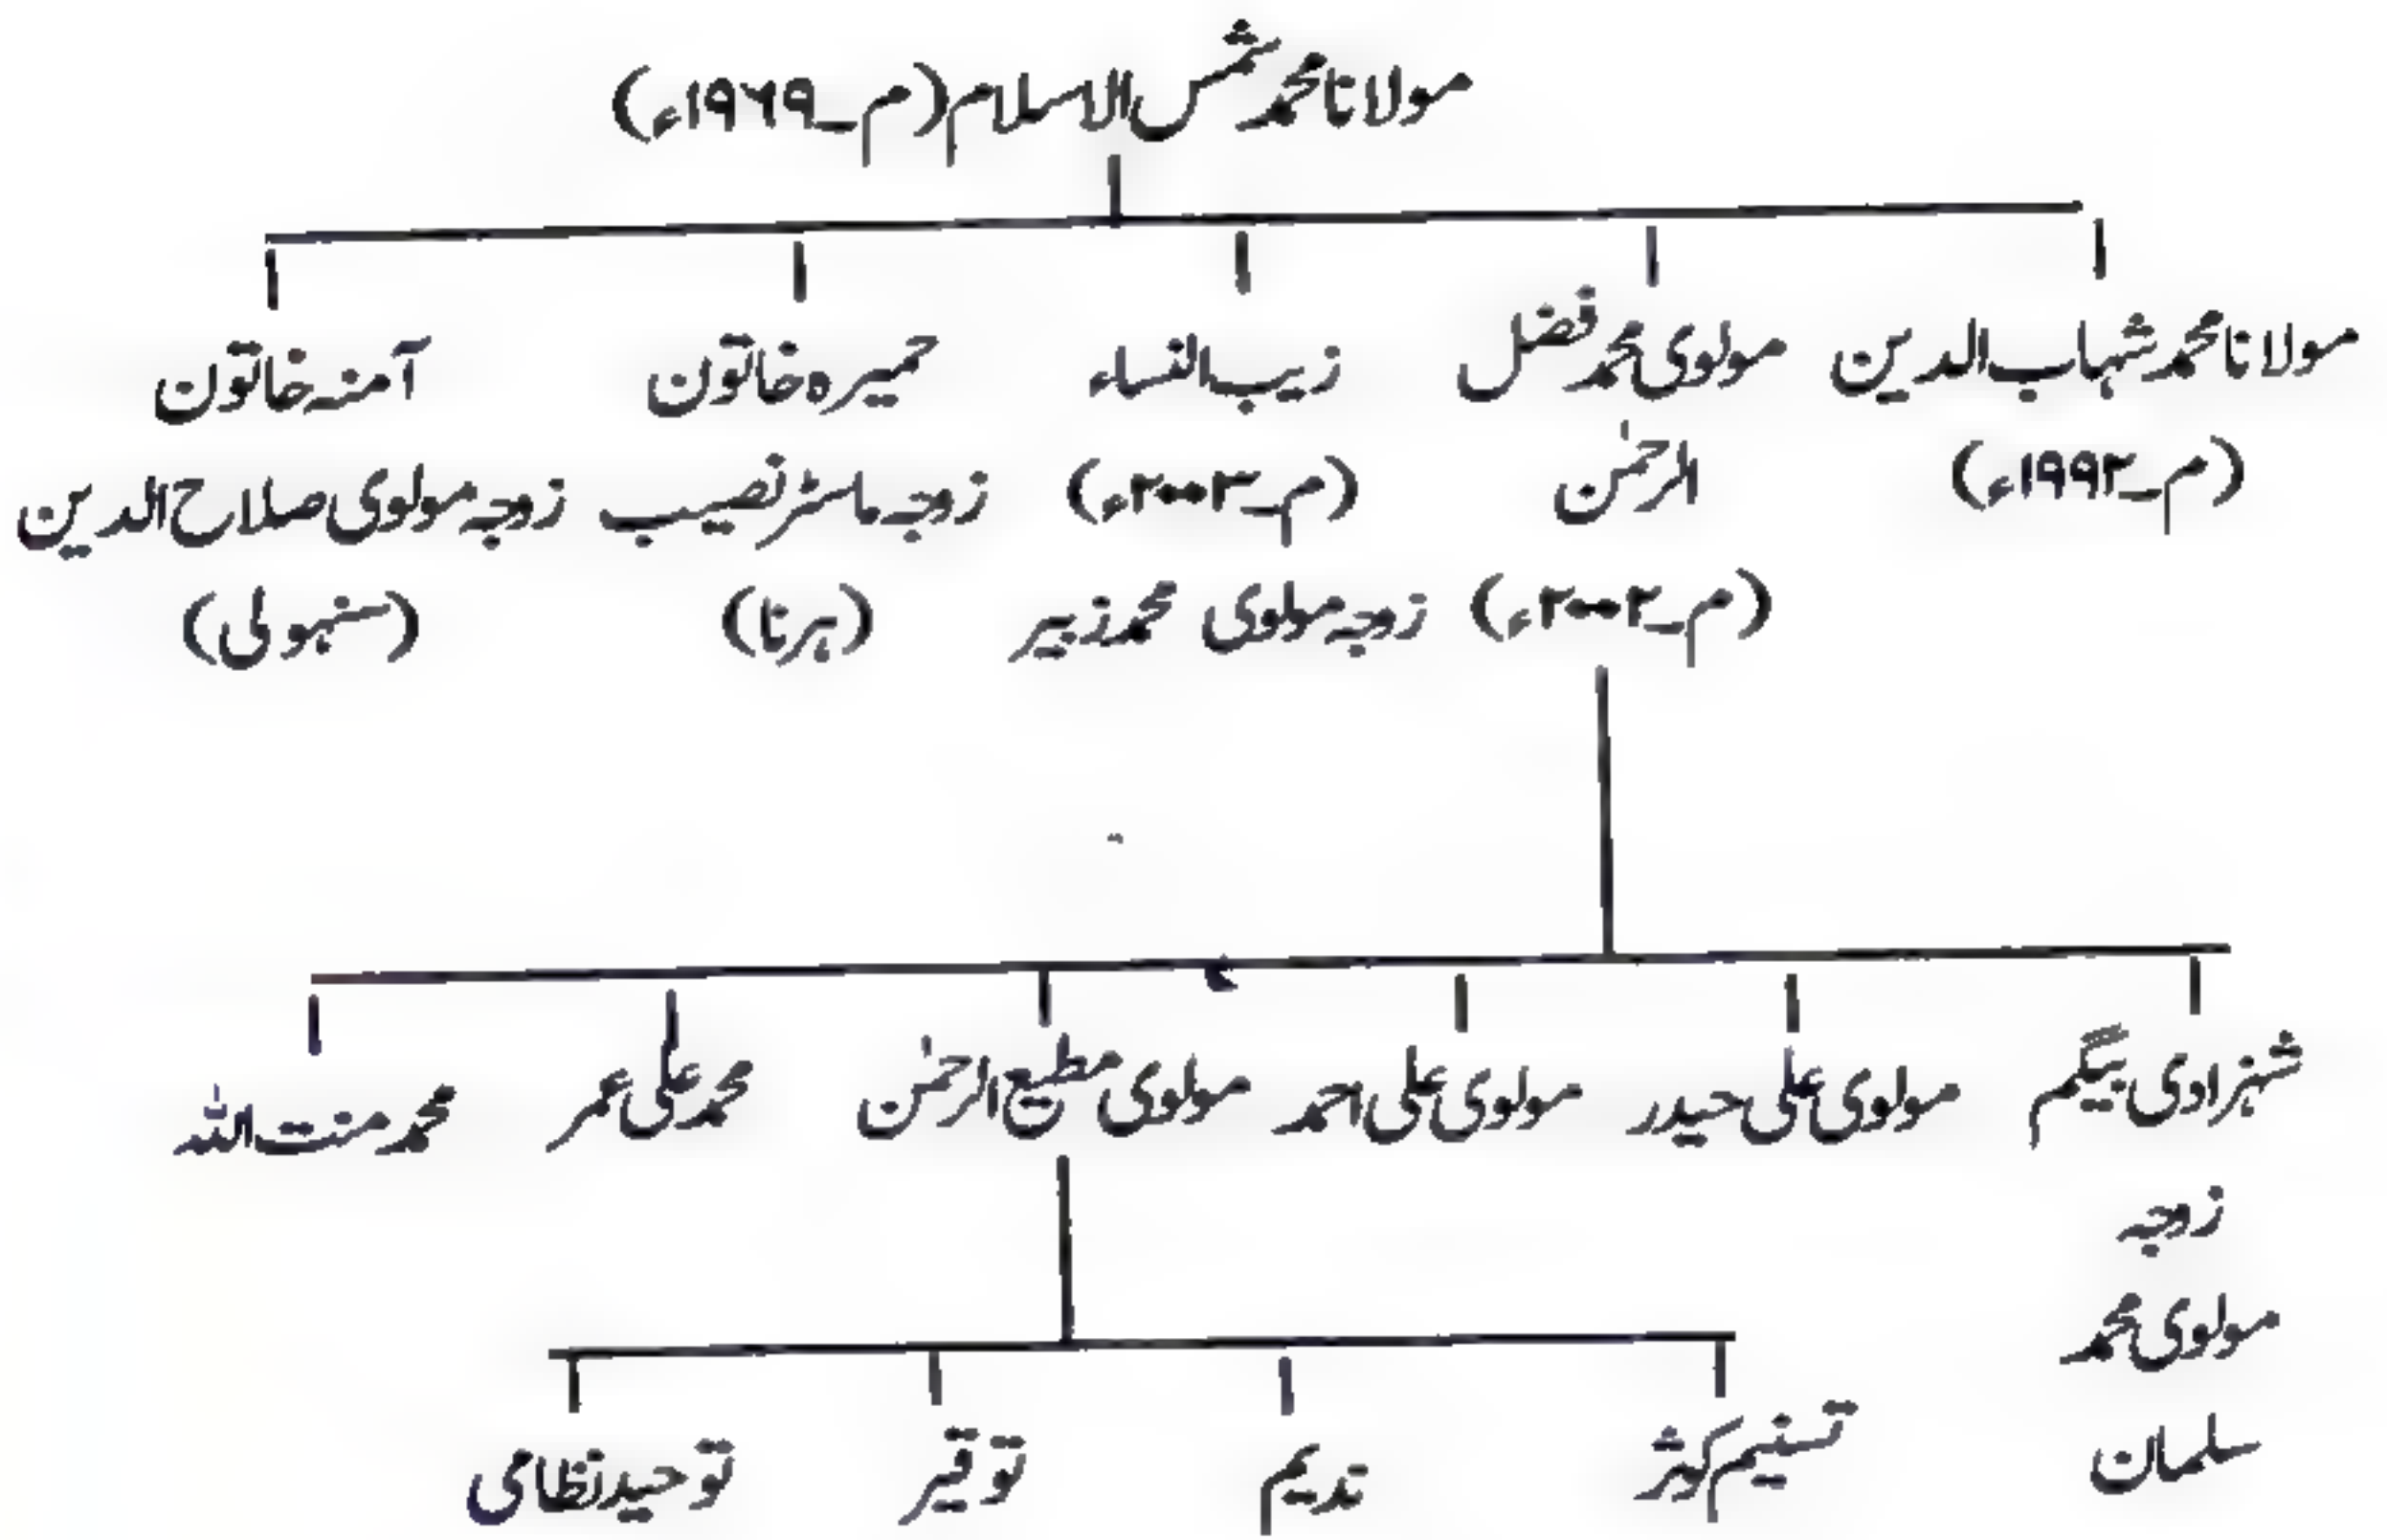 مولانا محمد شمس الاسلام (م۔۱۹۶۹ء)
مولانا محمد شہاب الدین
(م۔۱۹۹۲ء)
مولوی محمد فضل
الرحمٰن
(م۔۲۰۰۲ء)
زیب النساء
(م۔۲۰۰۳ء)
زوجہ مولوی محمد زبیر
حمیرہ خاتون
زوجہ ماسٹر نصیب
(ہرنا)
آمنہ خاتون
زوجہ مولوی صلاح الدین
(سنہولی)
شہزادی بیگم
زوجہ
مولوی محمد
سلمان
مولوی علی حیدر
مولوی علی احمد
مولوی مطیع الرحمٰن
محمد علی عمر
محمد منت اللہ
تسنیم کوثر
ندیم
توقیر
توحید نظامی